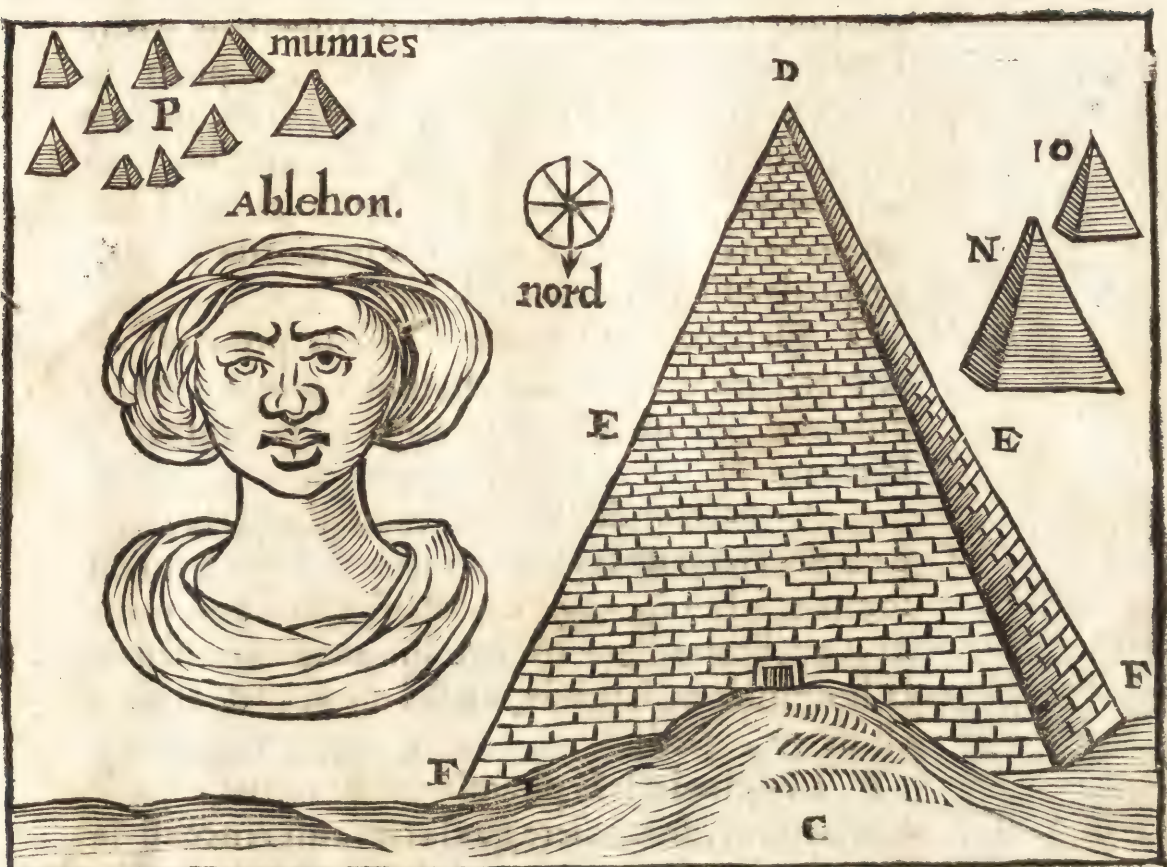 mumies
P
Ablehon.
nord
D
10
N
E
E
F
F
C